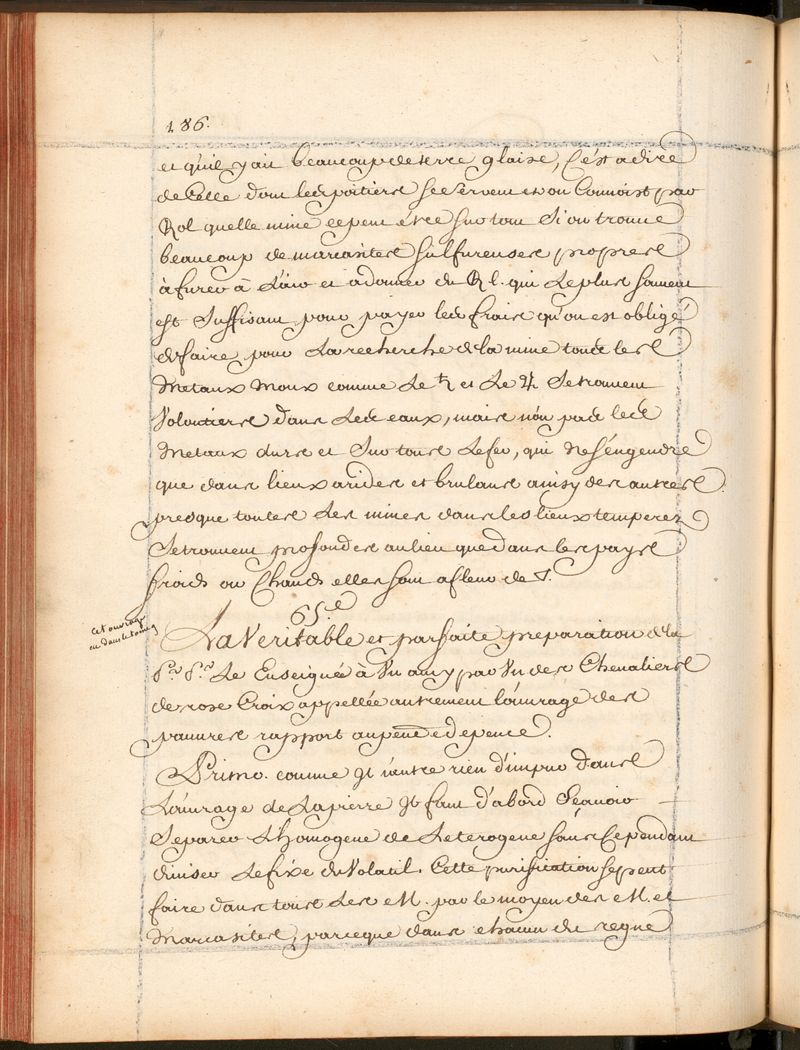 186.
et quil y ait beaucoup de terre glaise, C'est a dire
de Celle dont les potiers se servent et on Connoist par
quelle mine ce peut étre sur tout Si on trouve
beaucoup de marcasites sulfureuses propres
à et a donner du qui Le plus souvent
est Suffisant pour payer les frais qu'on est obligé
de faire pour La recherche de la mine toutes les
Metaux Moux comme Le ♄ et Le ♃ Se trouvent
Volontiers dans Les eaux, mais non pas les
Metaux durs et Sur tout Le fer, qui ne s'éngendre
que dans lieux arides et brulans ainsy des autres.
presque toutes Les mines dans les lieux temperez
Se trouvent profondes au lieu que dans les pays
froids ou Chauds elles sont a fleur de T.
65.e
cet ouvrage
est dans le tome
La Veritable et parfaite preparation de la
P.re P.le Le Enseigné à Un amy par Un des Chevaliers
de rose Croix appellée autrement l'ouvrage des
pauvres rapport au peu de depence.
Primo. comme Il n'entre rien d'impur dans
L'ouvrage de La pierre Il faut d'abord Sçavoir
Separer L'homogene de Leterogene sans Cependant
diviser Le fixe du Volatil. Cette purification se peut
faire dans tous Les M. par le moyen des M. et
Marcasites, parceque dans chacun du regne